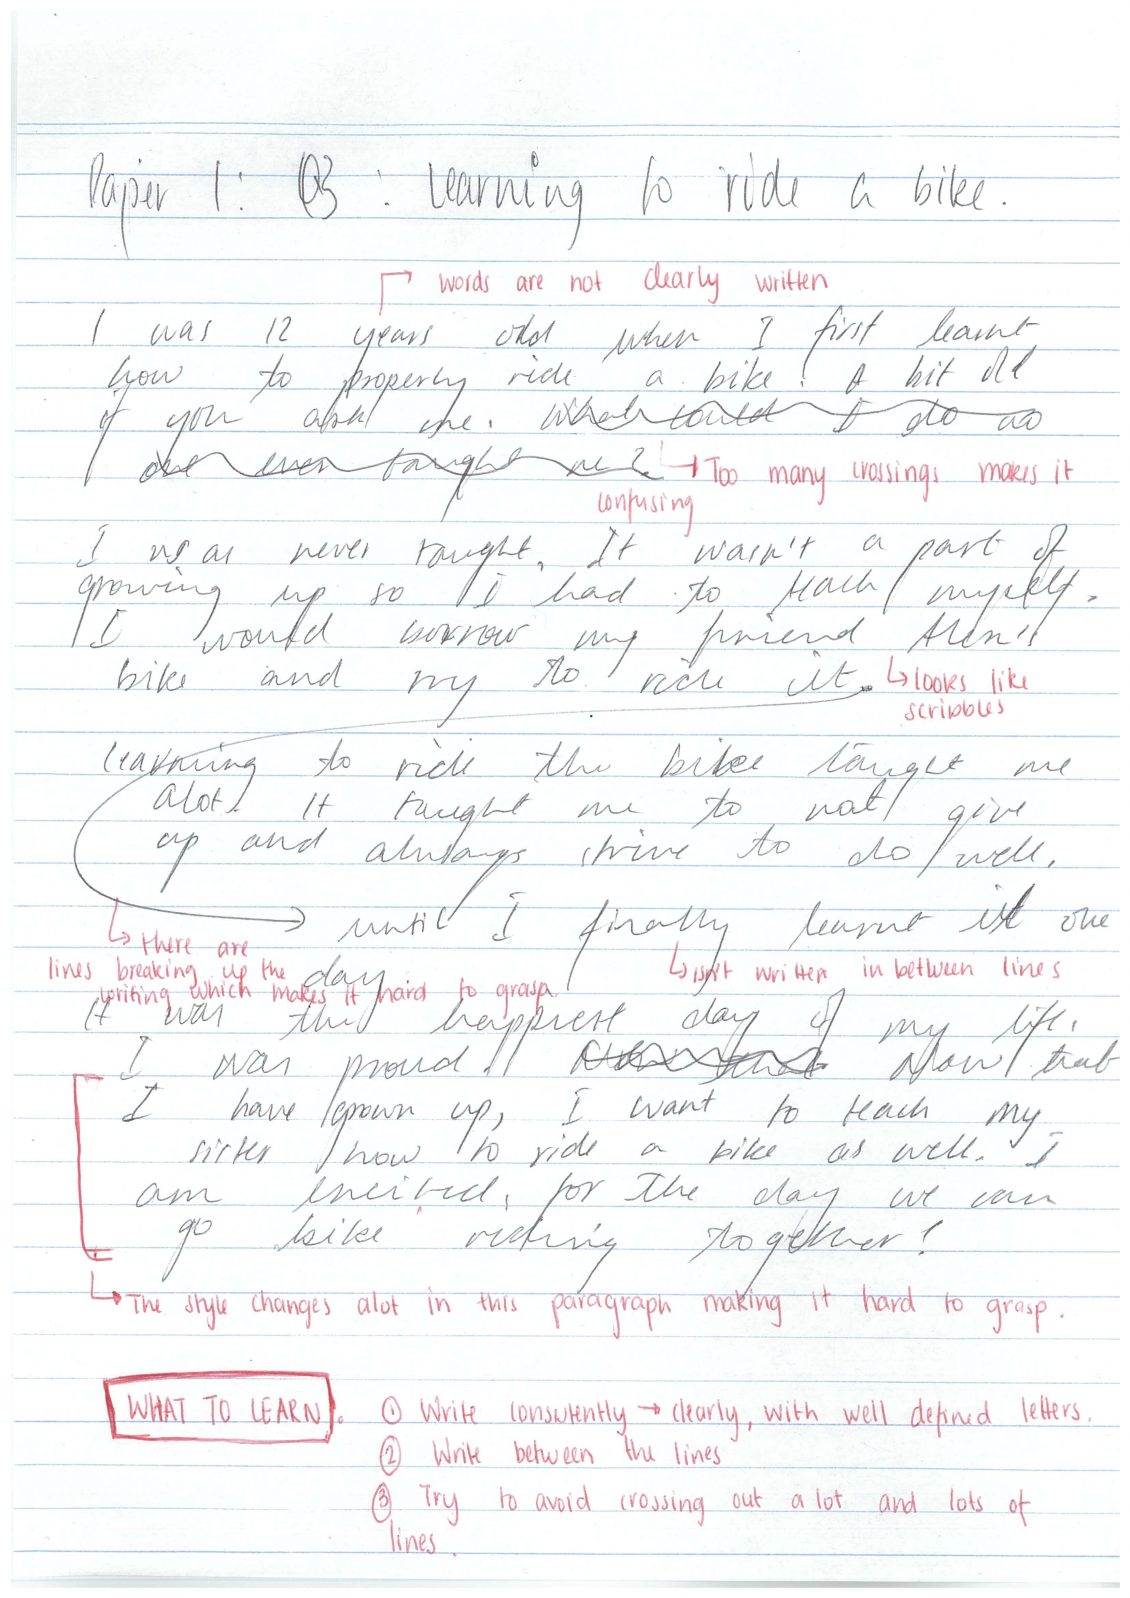 Paper 1: Q3: Learning to ride a bike.
words are not clearly written
I was 12 years old when I first learnt
how to properly ride a bike! A bit old
if you ask me. What could I do no
one ever taught me?
Too many crossings makes it
confusing
I was never taught. It wasn't a part of
growing up so I had to teach myself.
I would borrow my friend Alen's
bike and try to ride it.
looks like
scribbles
Learning to ride the bike taught me
alot. It taught me to not give
up and always strive to do well.
until I finally learnt it one
day.
there are
lines breaking up the
writing which makes it hard to grasp.
isn't written in between lines
It was the happiest day of my life.
I was proud. Now that
I have grown up, I want to teach my
sister how to ride a bike as well. I
am excited, for the day we can
go bike riding together!
The style changes alot in this paragraph making it hard to grasp.
WHAT TO LEARN. ① Write consistently → clearly, with well defined letters.
② Write between the lines
③ Try to avoid crossing out a lot and lots of
lines.